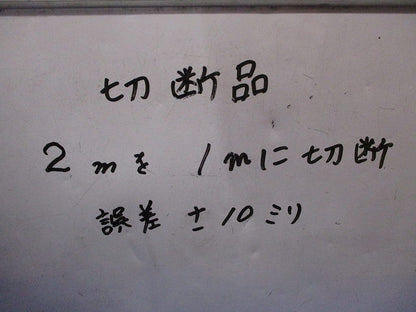 切断品
2mを 1mに切断
誤差 ±10ミリ